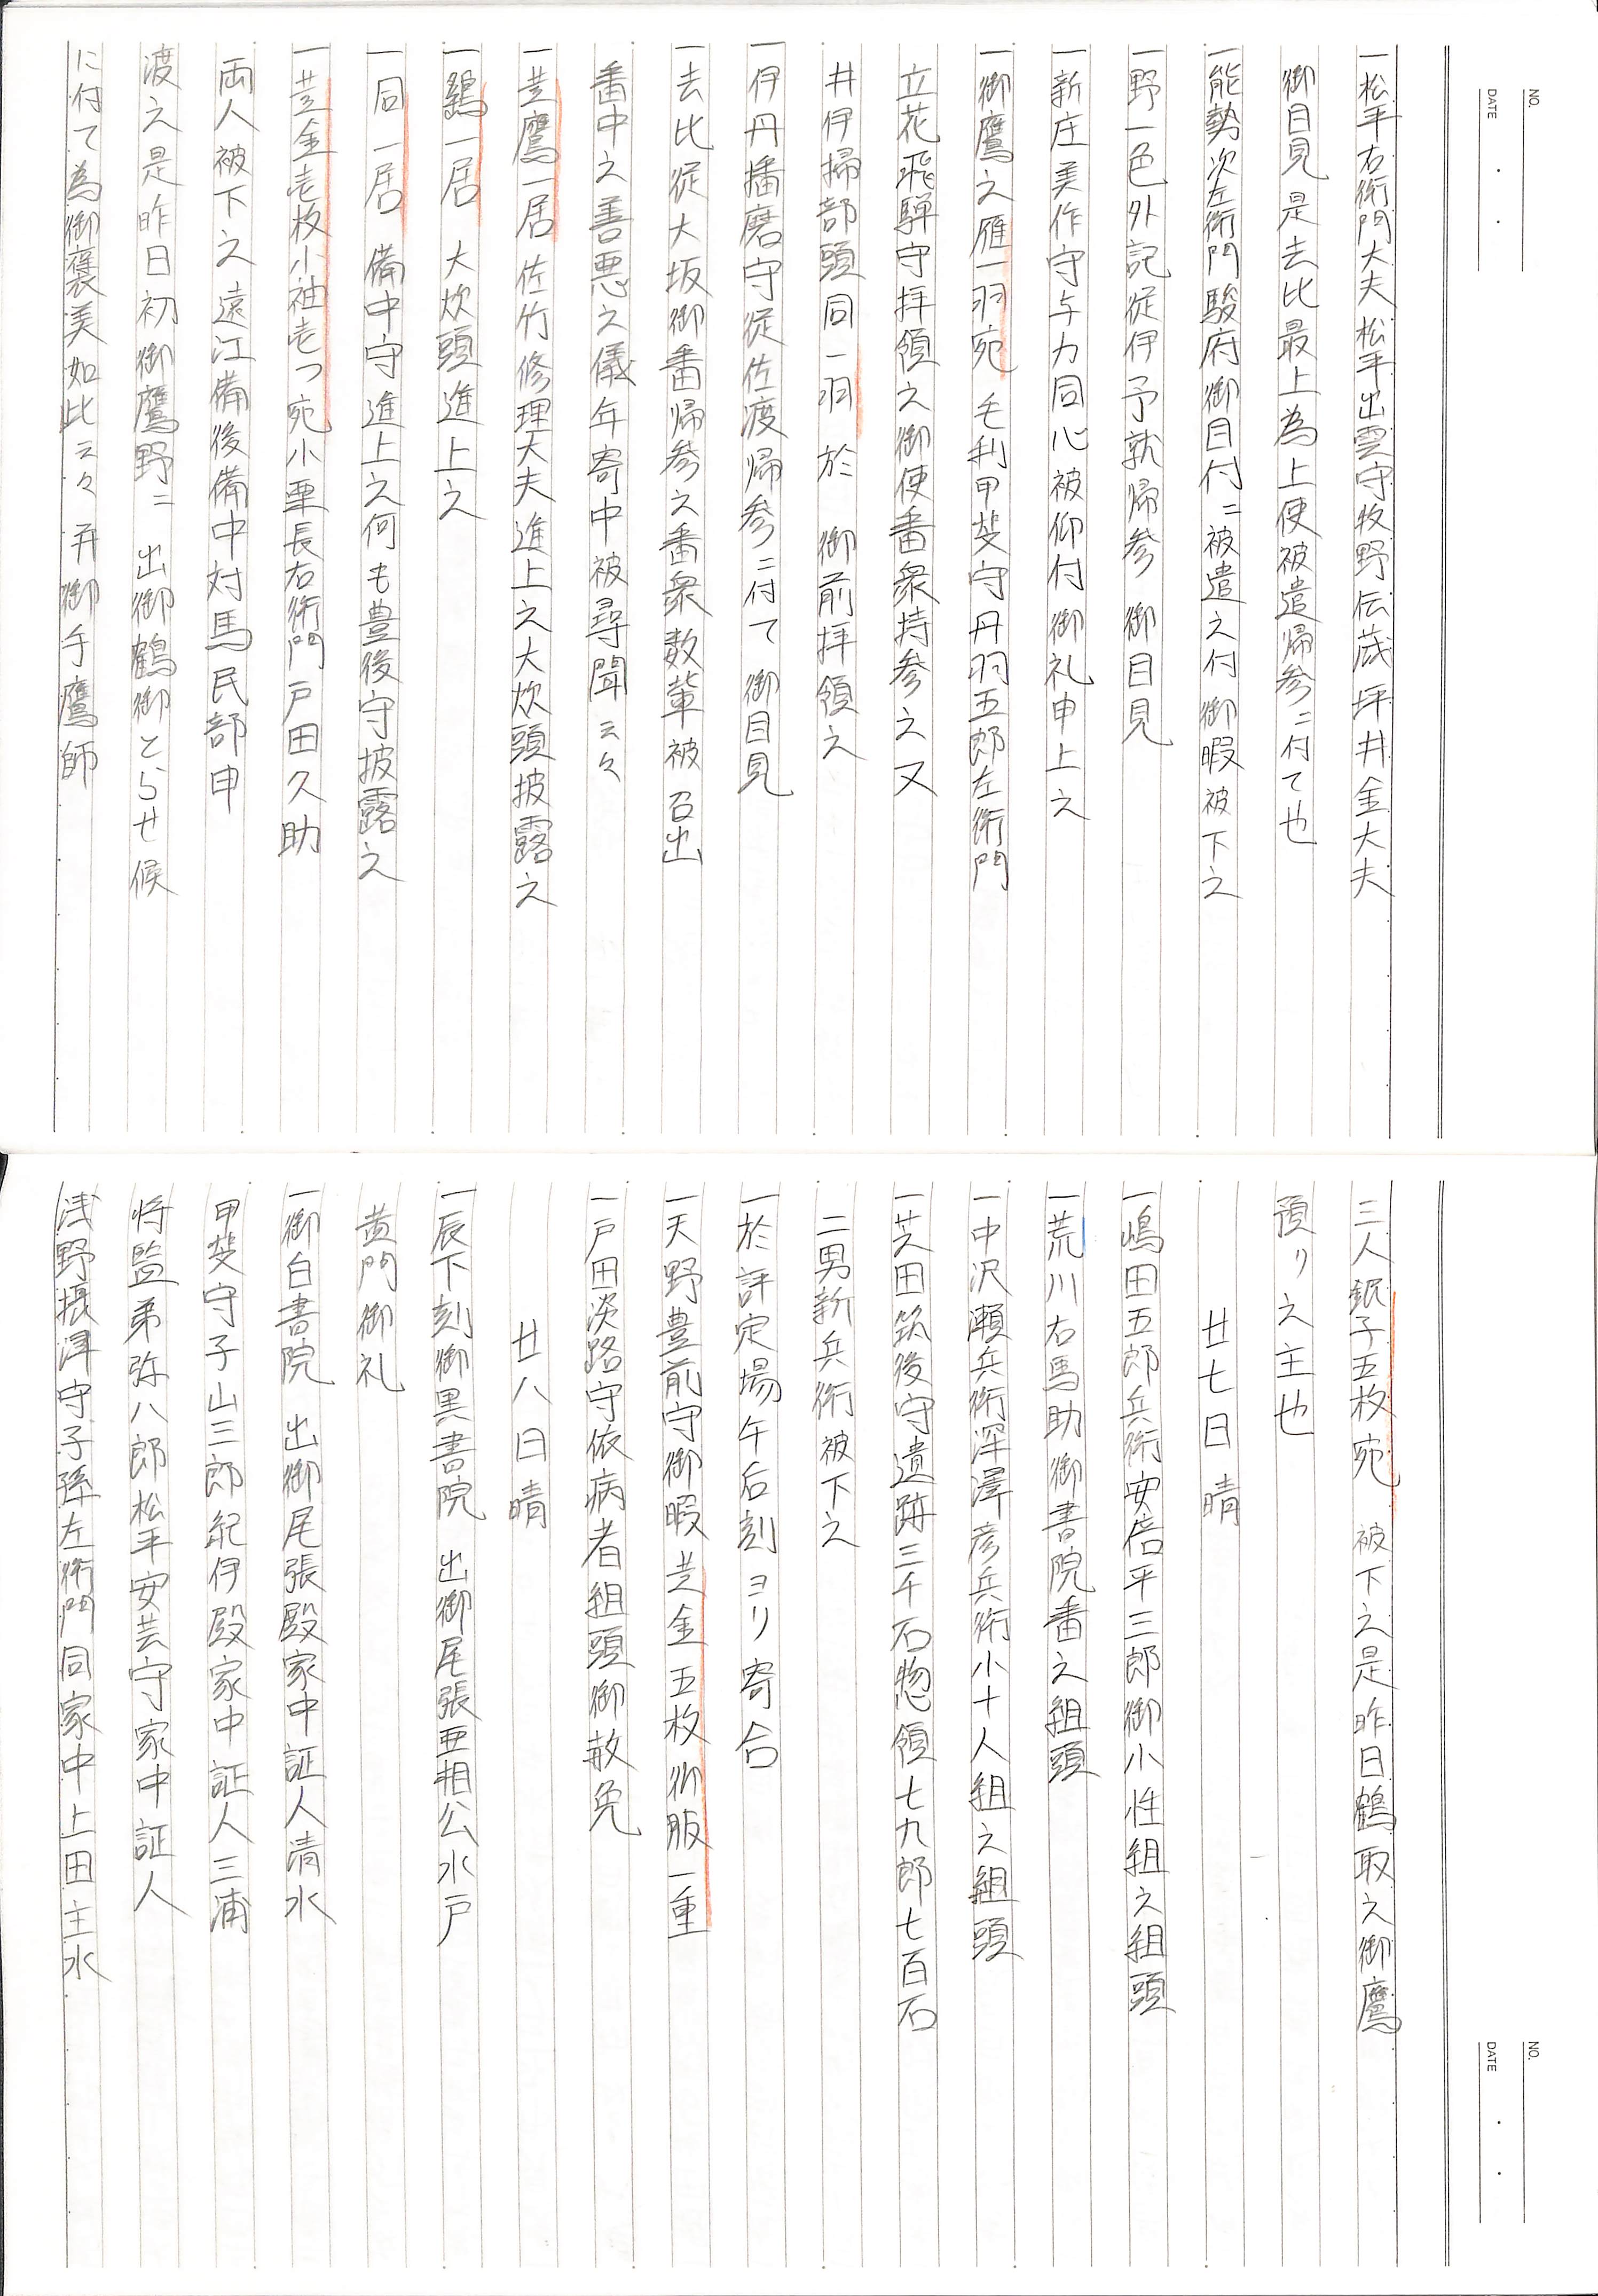 NO.
DATE
一松平右衛門大夫松平出雲守牧野伝蔵坪井金大夫
御目見是去比最上為上使被遣帰参ニ付て也
一能勢次左衛門駿府御目付ニ被遣之付御暇被下之
一野一色外記従伊予就帰参 御目見
一新庄美作守与力同心被仰付御礼申上之
一御鷹之雁一羽宛 毛利甲斐守丹羽五郎左衛門
立花飛騨守拝領之御使番衆持参之又
井伊掃部頭同一羽 於 御前拝領之
一伊丹播磨守従佐渡帰参ニ付て 御目見
一去比従大坂御番帰参之番衆数輩被召出
番中之善悪之儀年寄中被尋聞云々
一黄鷹一居 佐竹修理大夫進上之大炊頭披露之
一鶏一居 大炊頭進上之
一同一居 備中守進上之何も豊後守披露之
一黄金壱枚小袖壱つ宛小栗長右衛門戸田久助
両人被下之遠江備後備中対馬民部申
渡之是昨日初御鷹野ニ 出御鶴御とらせ候
に付て為御褒美如此云々 并御手鷹師
NO.
DATE
三人銀子五枚宛 被下之是昨日鶴取之御鷹
預リ之主也
廿七日 晴
一嶋田五郎兵衛安倍平三郎御小性組之組頭
一荒川右馬助御書院番之組頭
一中沢瀬兵衛深澤彦兵衛小十人組之組頭
一芝田筑後守遺跡三千石惣領七九郎七百石
二男新兵衛被下之
一於評定場午后刻ヨリ寄合
一天野豊前守御暇 黄金五枚御服一重
一戸田淡路守依病者組頭御赦免
廿八日 晴
一辰下刻御黒書院 出御尾張亜相公水戸
黄門御礼
一御白書院 出御尾張殿家中証人清水
甲斐守子山三郎紀伊殿家中証人三浦
将監弟弥八郎松平安芸守家中証人
浅野摂津守子孫左衛門同家中上田主水